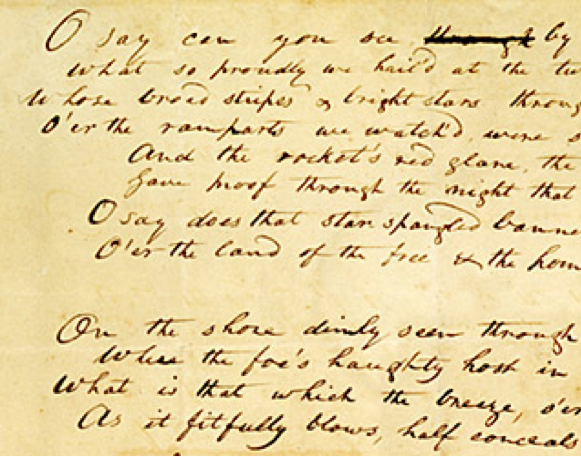 O say can you see through by
What so proudly we hail'd at the tw
Whose broad stripes & bright stars throug
O'er the ramparts we watch'd, were s
And the rocket's red glare, the
Gave proof through the night that
O say does that star spangled banne
O'er the land of the free & the hom
On the shore dimly seen through
Where the foe's haughty host in
What is that which the breeze, o'er
As it fitfully blows, half conceals